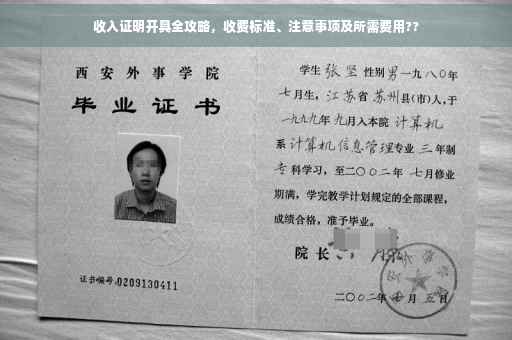 收入证明开具全攻略，收费标准、注意事项及所需费用??
西安外事学院
毕业证书
证书编号:0209130411
学生 张坚 性别男一九八〇年
七月生，江苏省 苏州县(市)人，于
一九九九年 九月入本院 计算机
系 计算机信息管理专业 三 年制
专 科学习，至二〇〇二年 七月修业
期满，学完教学计划规定的全部课程，
成绩合格，准予毕业。
院长
二〇〇二年 月 五日